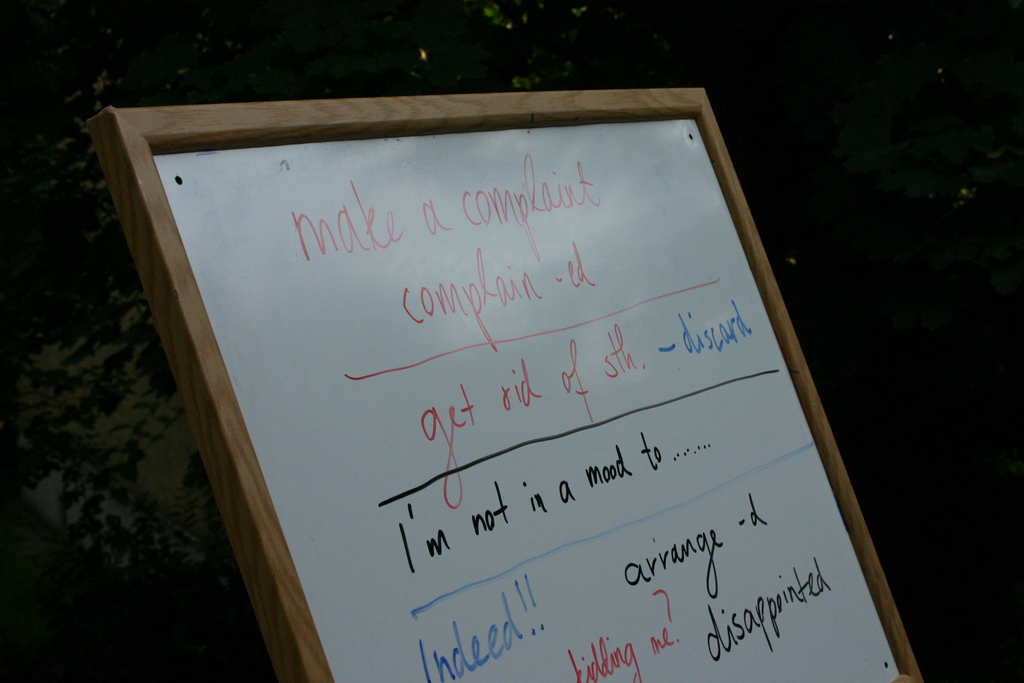 make a complaint
complain -ed
get rid of sth. - discard
I'm not in a mood to .......
arrange -d
Indeed!!
kidding me?
disappointed